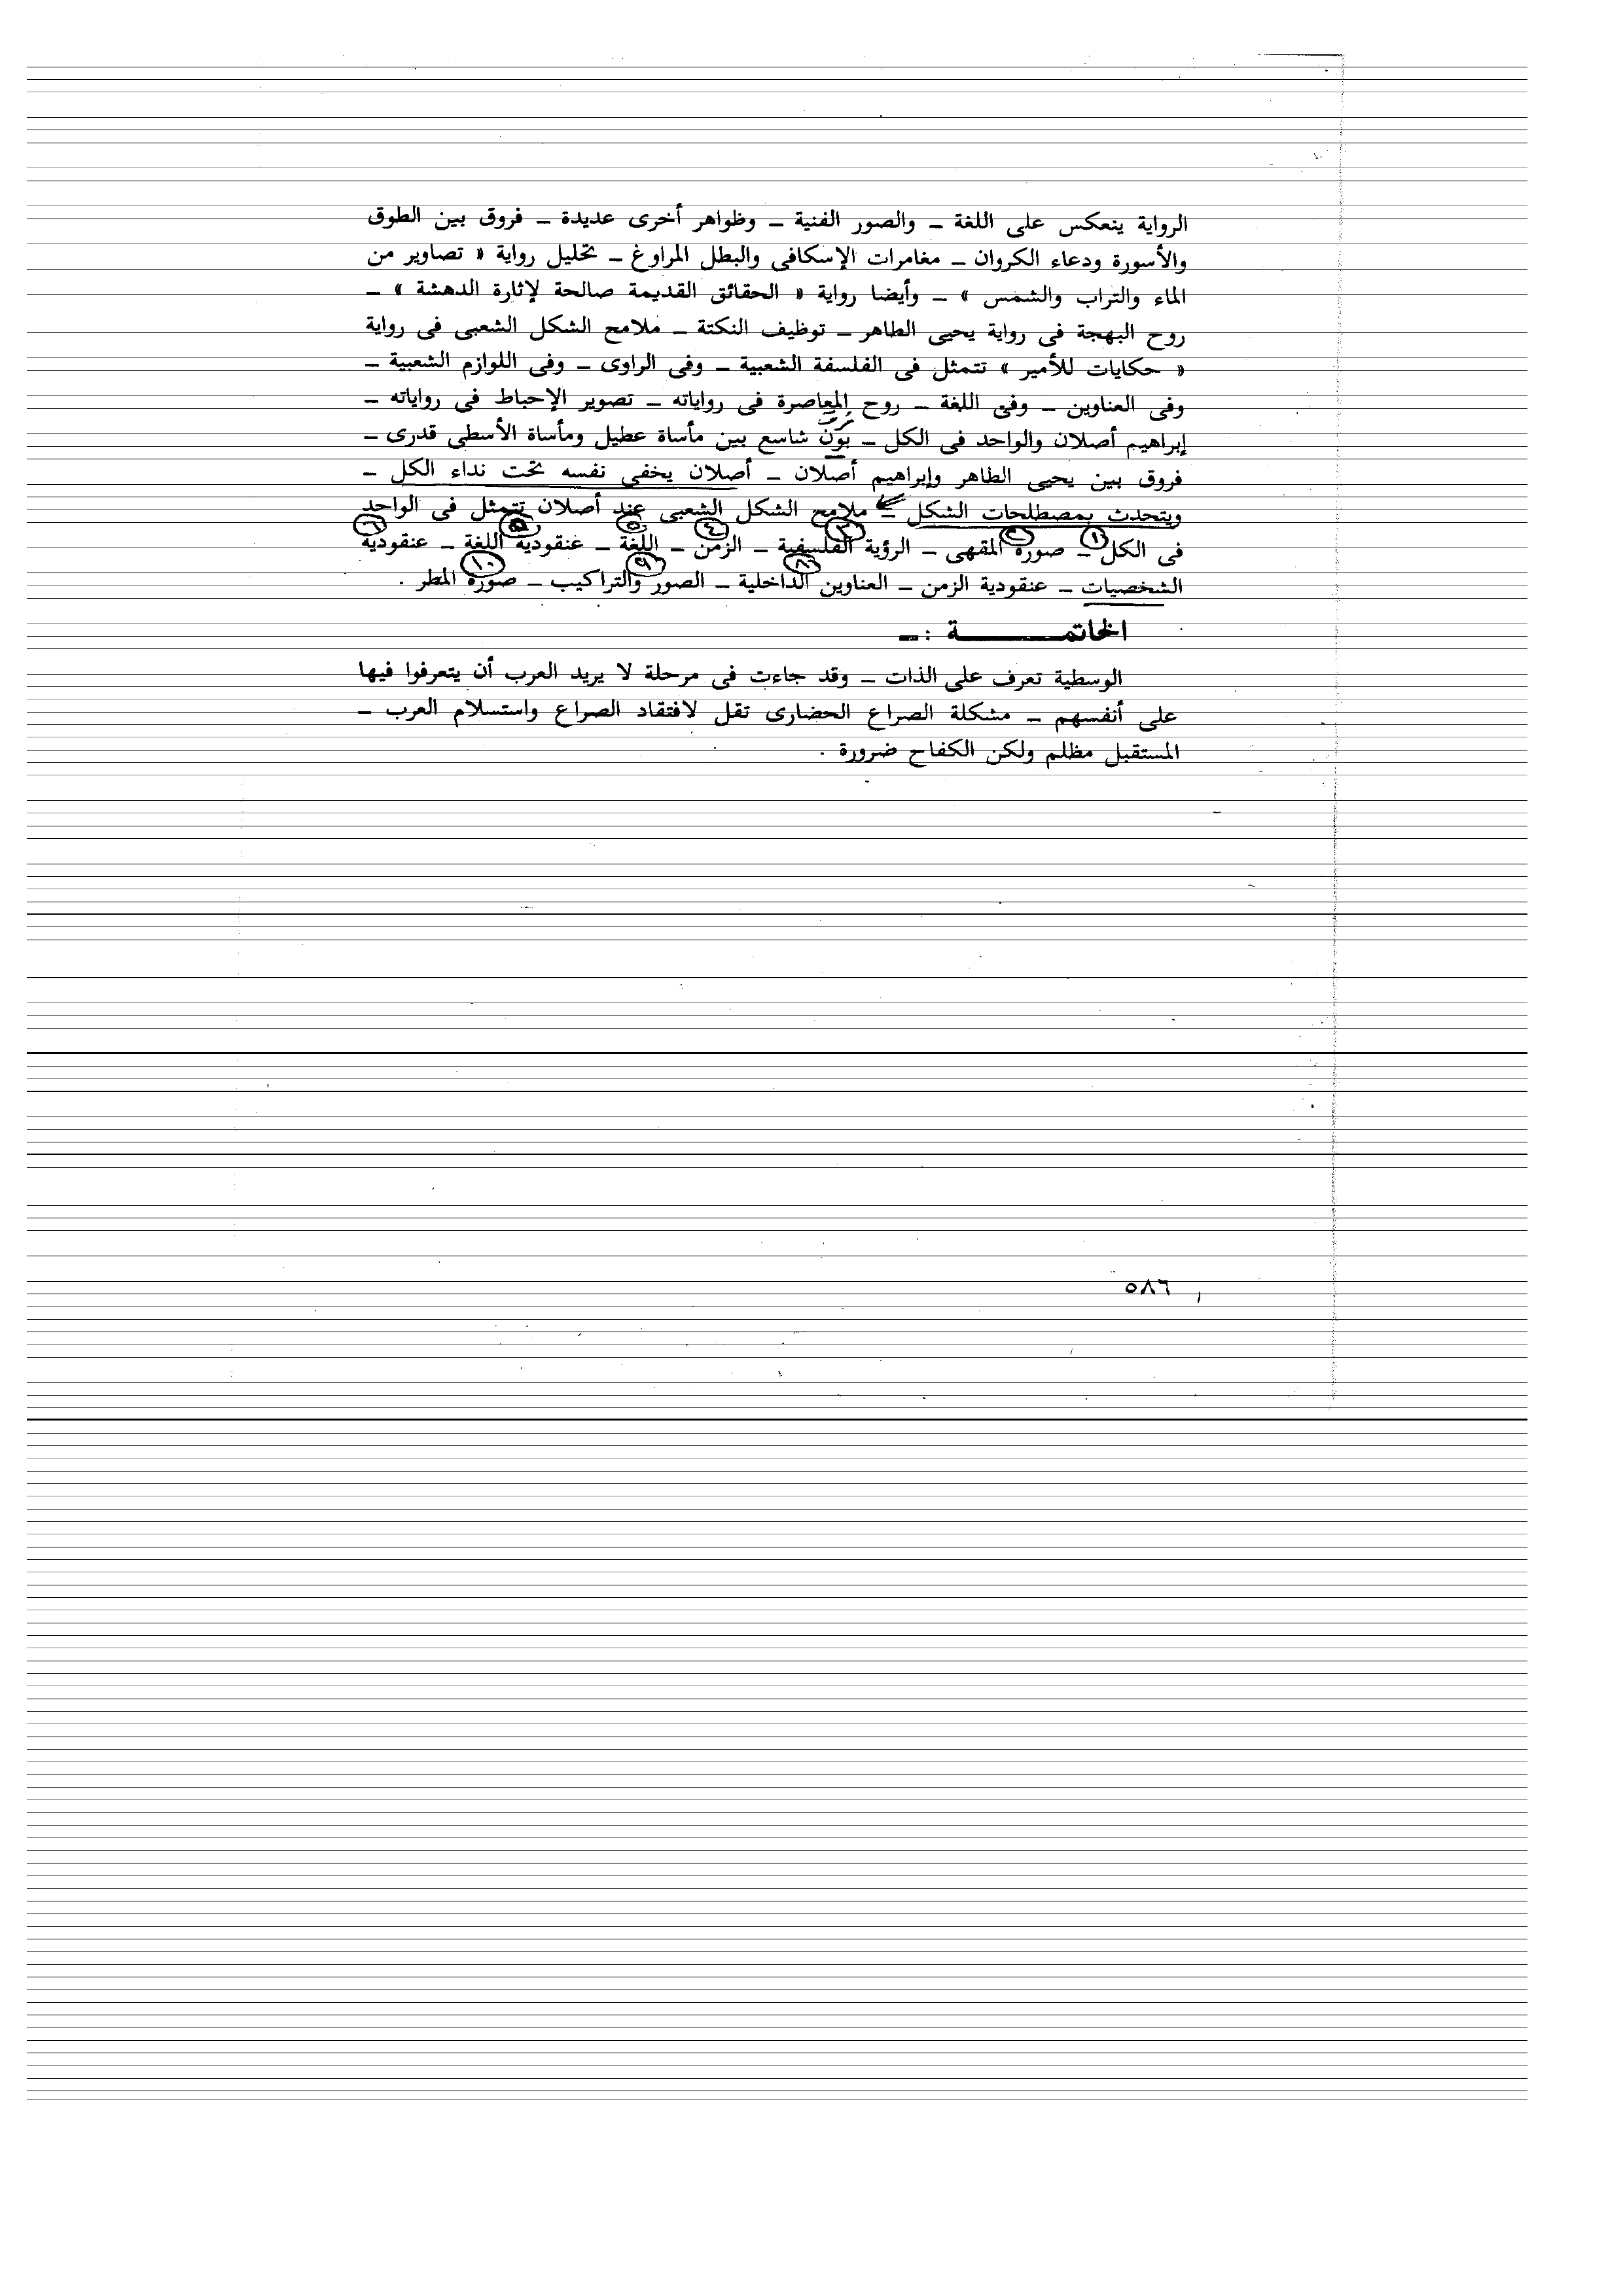 الرواية ينعكس على اللغة ــ والصور الفنية ــ وظواهر أخرى عديدة ــ فروق بين الطوق
والأسورة ودعاء الكروان ــ مغامرات الإسكافى والبطل المراوغ ــ تحليل رواية « تصاوير من
الماء والتراب والشمس » ــ وأيضا رواية « الحقائق القديمة صالحة لإثارة الدهشة » ــ
روح البهجة فى رواية يحيى الطاهر ــ توظيف النكتة ــ ملامح الشكل الشعبى فى رواية
« حكايات للأمير » تتمثل فى الفلسفة الشعبية ــ وفى الراوى ــ وفى اللوازم الشعبية ــ
وفى العناوين ــ وفى اللغة ــ روح المعاصرة فى رواياته ــ تصوير الإحباط فى رواياته ــ
إبراهيم أصلان والواحد فى الكل ــ بَوْنٌ شاسع بين مأساة عطيل ومأساة الأسطى قدرى ــ
فروق بين يحيى الطاهر وإبراهيم أصلان ــ أصلان يخفى نفسه تحت نداء الكل ــ
ويتحدث بمصطلحات الشكل ــ ملامح الشكل الشعبى عند أصلان تتمثل فى الواحد
١ ٢ ٣ ٤ ٥ ٥ ٦
فى الكل ــ صورة المقهى ــ الرؤية الفلسفية ــ الزمن ــ اللغة ــ عنقودية اللغة ــ عنقودية
٩ ١٠
الشخصيات ــ عنقودية الزمن ــ العناوين الداخلية ــ الصور والتراكيب ــ صورة المطر .
الخاتمـــــــة :ــ
الوسطية تعرف على الذات ــ وقد جاءت فى مرحلة لا يريد العرب أن يتعرفوا فيها
على أنفسهم ــ مشكلة الصراع الحضارى تقل لافتقاد الصراع واستسلام العرب ــ
المستقبل مظلم ولكن الكفاح ضرورة .
٥٨٦